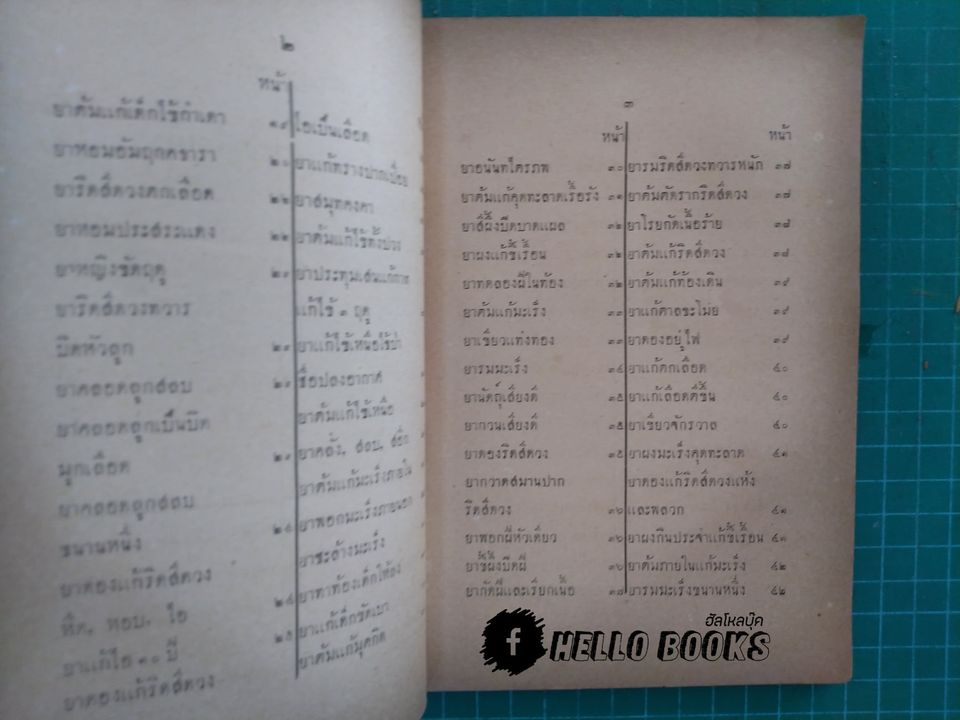 ๒
หน้า
ยาต้มแก้เด็กไข้กำเดา ๑๙
ยาหอมอัมฤตคจารา ๒๐
ยาริดสีดวงตกเลือด ๒๒
ยาหอมประสระแดง ๒๒
ยาหญิงขัดฤดู ๒๓
ยาริดสีดวงทวาร
บิดหัวลูก ๒๓
ยาคลอดลูกสลบ ๒๓
ยาคลอดลูกเป็นบิด
มูกเลือด ๒๓
ยาคลอดลูกสลบ
ขนานหนึ่ง ๒๔
ยาดองแก้ริดสีดวง
หืด, หอบ, ไอ ๒๔
ยาแก้ไอ ๓๐ ปี ๒๕
ยาดองแก้ริดสีดวง
ไอเป็นเลือด
ยาแก้ทรางปากเปื่อย
ยาสมุทคงคา
ยาต้มแก้ไข้ทั้งปวง
ยาประทุมเสนแก้กาฬ
แก้ไข้ ๓ ฤดู
ยาแก้ไข้เหนือไข้ป่า
ชื่อปลงอากาศ
ยาต้มแก้ไข้เหนือ
ยาคลั่ง, สลบ,
ยาต้มแก้มะเร็งภายใน
ยาพอกมะเร็งภายนอก
ยาชะล้างมะเร็ง
ยาทาท้องเด็กให้ลง
ยาแก้เด็กขัดเบา
ยาต้มแก้มุตกิด
๓
หน้า
ยาอนันทไตรภพ ๓๐
ยาต้มแก้คุดทะลาดเรื้อรัง ๓๑
ยาสีผึ้งบีดบาดแผล ๓๒
ยาผงแก้ขี้เรื้อน ๓๒
ยาทดลองฝีในท้อง ๓๒
ยาต้มแก้มะเร็ง ๓๓
ยาเขียวแท่งทอง ๓๓
ยารมมะเร็ง ๓๔
ยานัตถุ์เสียงดี ๓๕
ยากวนเสียงดี ๓๕
ยาดองริดสีดวง ๓๕
ยากวาดสมานปาก
ริดสีดวง ๓๖
ยาพอกฝีหัวเดียว ๓๖
ยาขี้ผึ้งบีดฝี ๓๖
ยากัดฝีและเรียกเนื้อ ๓๗
หน้า
ยารมริดสีดวงทวารหนัก ๓๗
ยาต้มตัดรากริดสีดวง ๓๗
ยาโรยกัดเนื้อร้าย ๓๘
ยาต้มแก้ริดสีดวง ๓๘
ยาต้มแก้ท้องเดิน ๓๙
ยาแก้ศาลขะโมย ๓๙
ยาดองอยู่ไฟ ๓๙
ยาแก้ตกเลือด ๔๐
ยาแก้เลือดตีขึ้น ๔๐
ยาเขียวจักรวาล ๔๐
ยาผงมะเร็งคุดทะลาด ๔๑
ยาดองแก้ริดสีดวงแห้ง
และพลวก ๔๑
ยาผงกินประจำแก้ขี้เรื้อน ๔๑
ยาต้มภายในแก้มะเร็ง ๔๒
ยารมมะเร็งขนานหนึ่ง ๔๒
ฮัลโหลบุ๊ค
f HELLO BOOKS